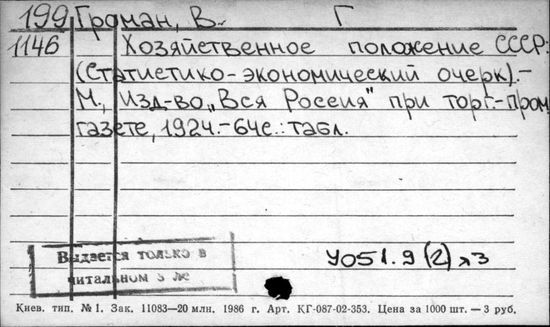 199 Громан, В. Г
1146 Хозяйственное положение СССР:
(Статистико-экономический очерк).-
М., Изд-во „Вся Россия" при торг.-пром.
газете, 1924.-64с.: табл.
Выдается только в
читальном зале
У051.9(2)я3
Киев. тип. № 1. Зак. 11083—20 млн. 1986 г. Арт. КГ-087-02-353. Цена за 1000 шт. — 3 руб.